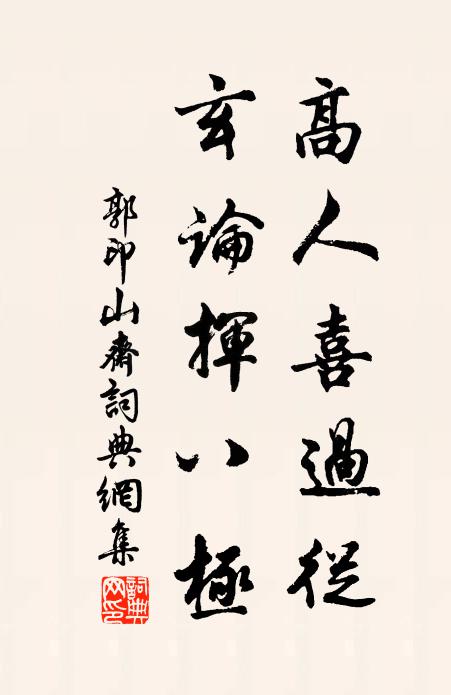 高人喜過從
玄論揮八極
郭印山齋詞典網集
詞典网印